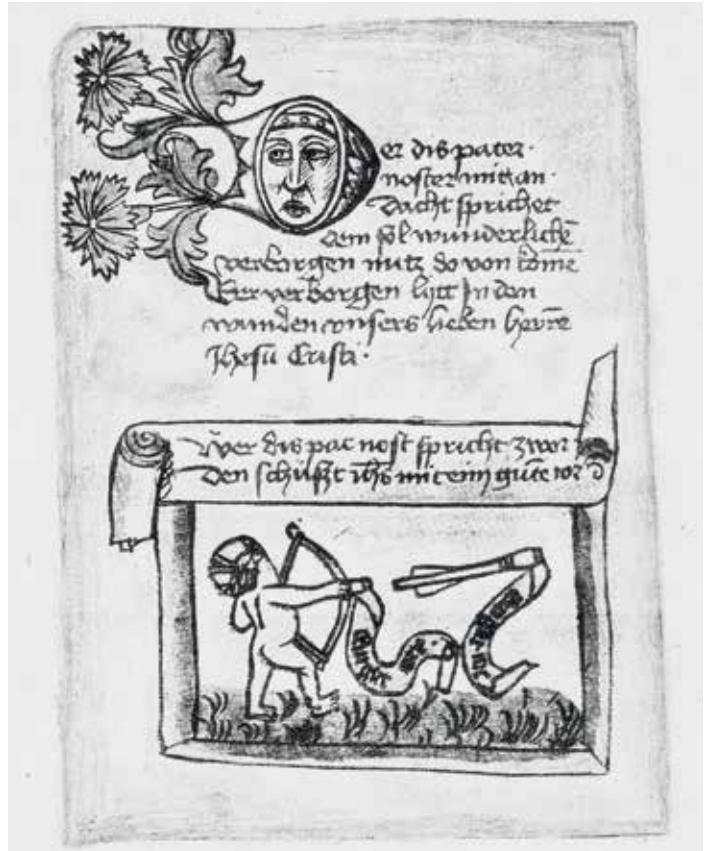 er dis pater ·
noster mit an ·
dacht sprichet
dem sol wunderlichē
verborgen nutz do von kōmē
Der verborgen lytt Jn den
wunden vnsers lieben herrē
Jhesu Cristi ·
Wer dis pat nost spricht zwor
Den schüszt ihs mit eim gutē ior